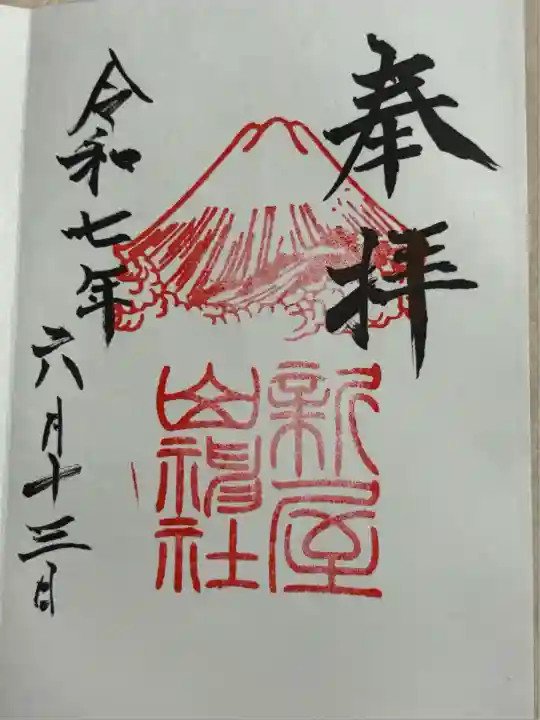 奉拝
新屋
山神社
令和七年
六月十三日